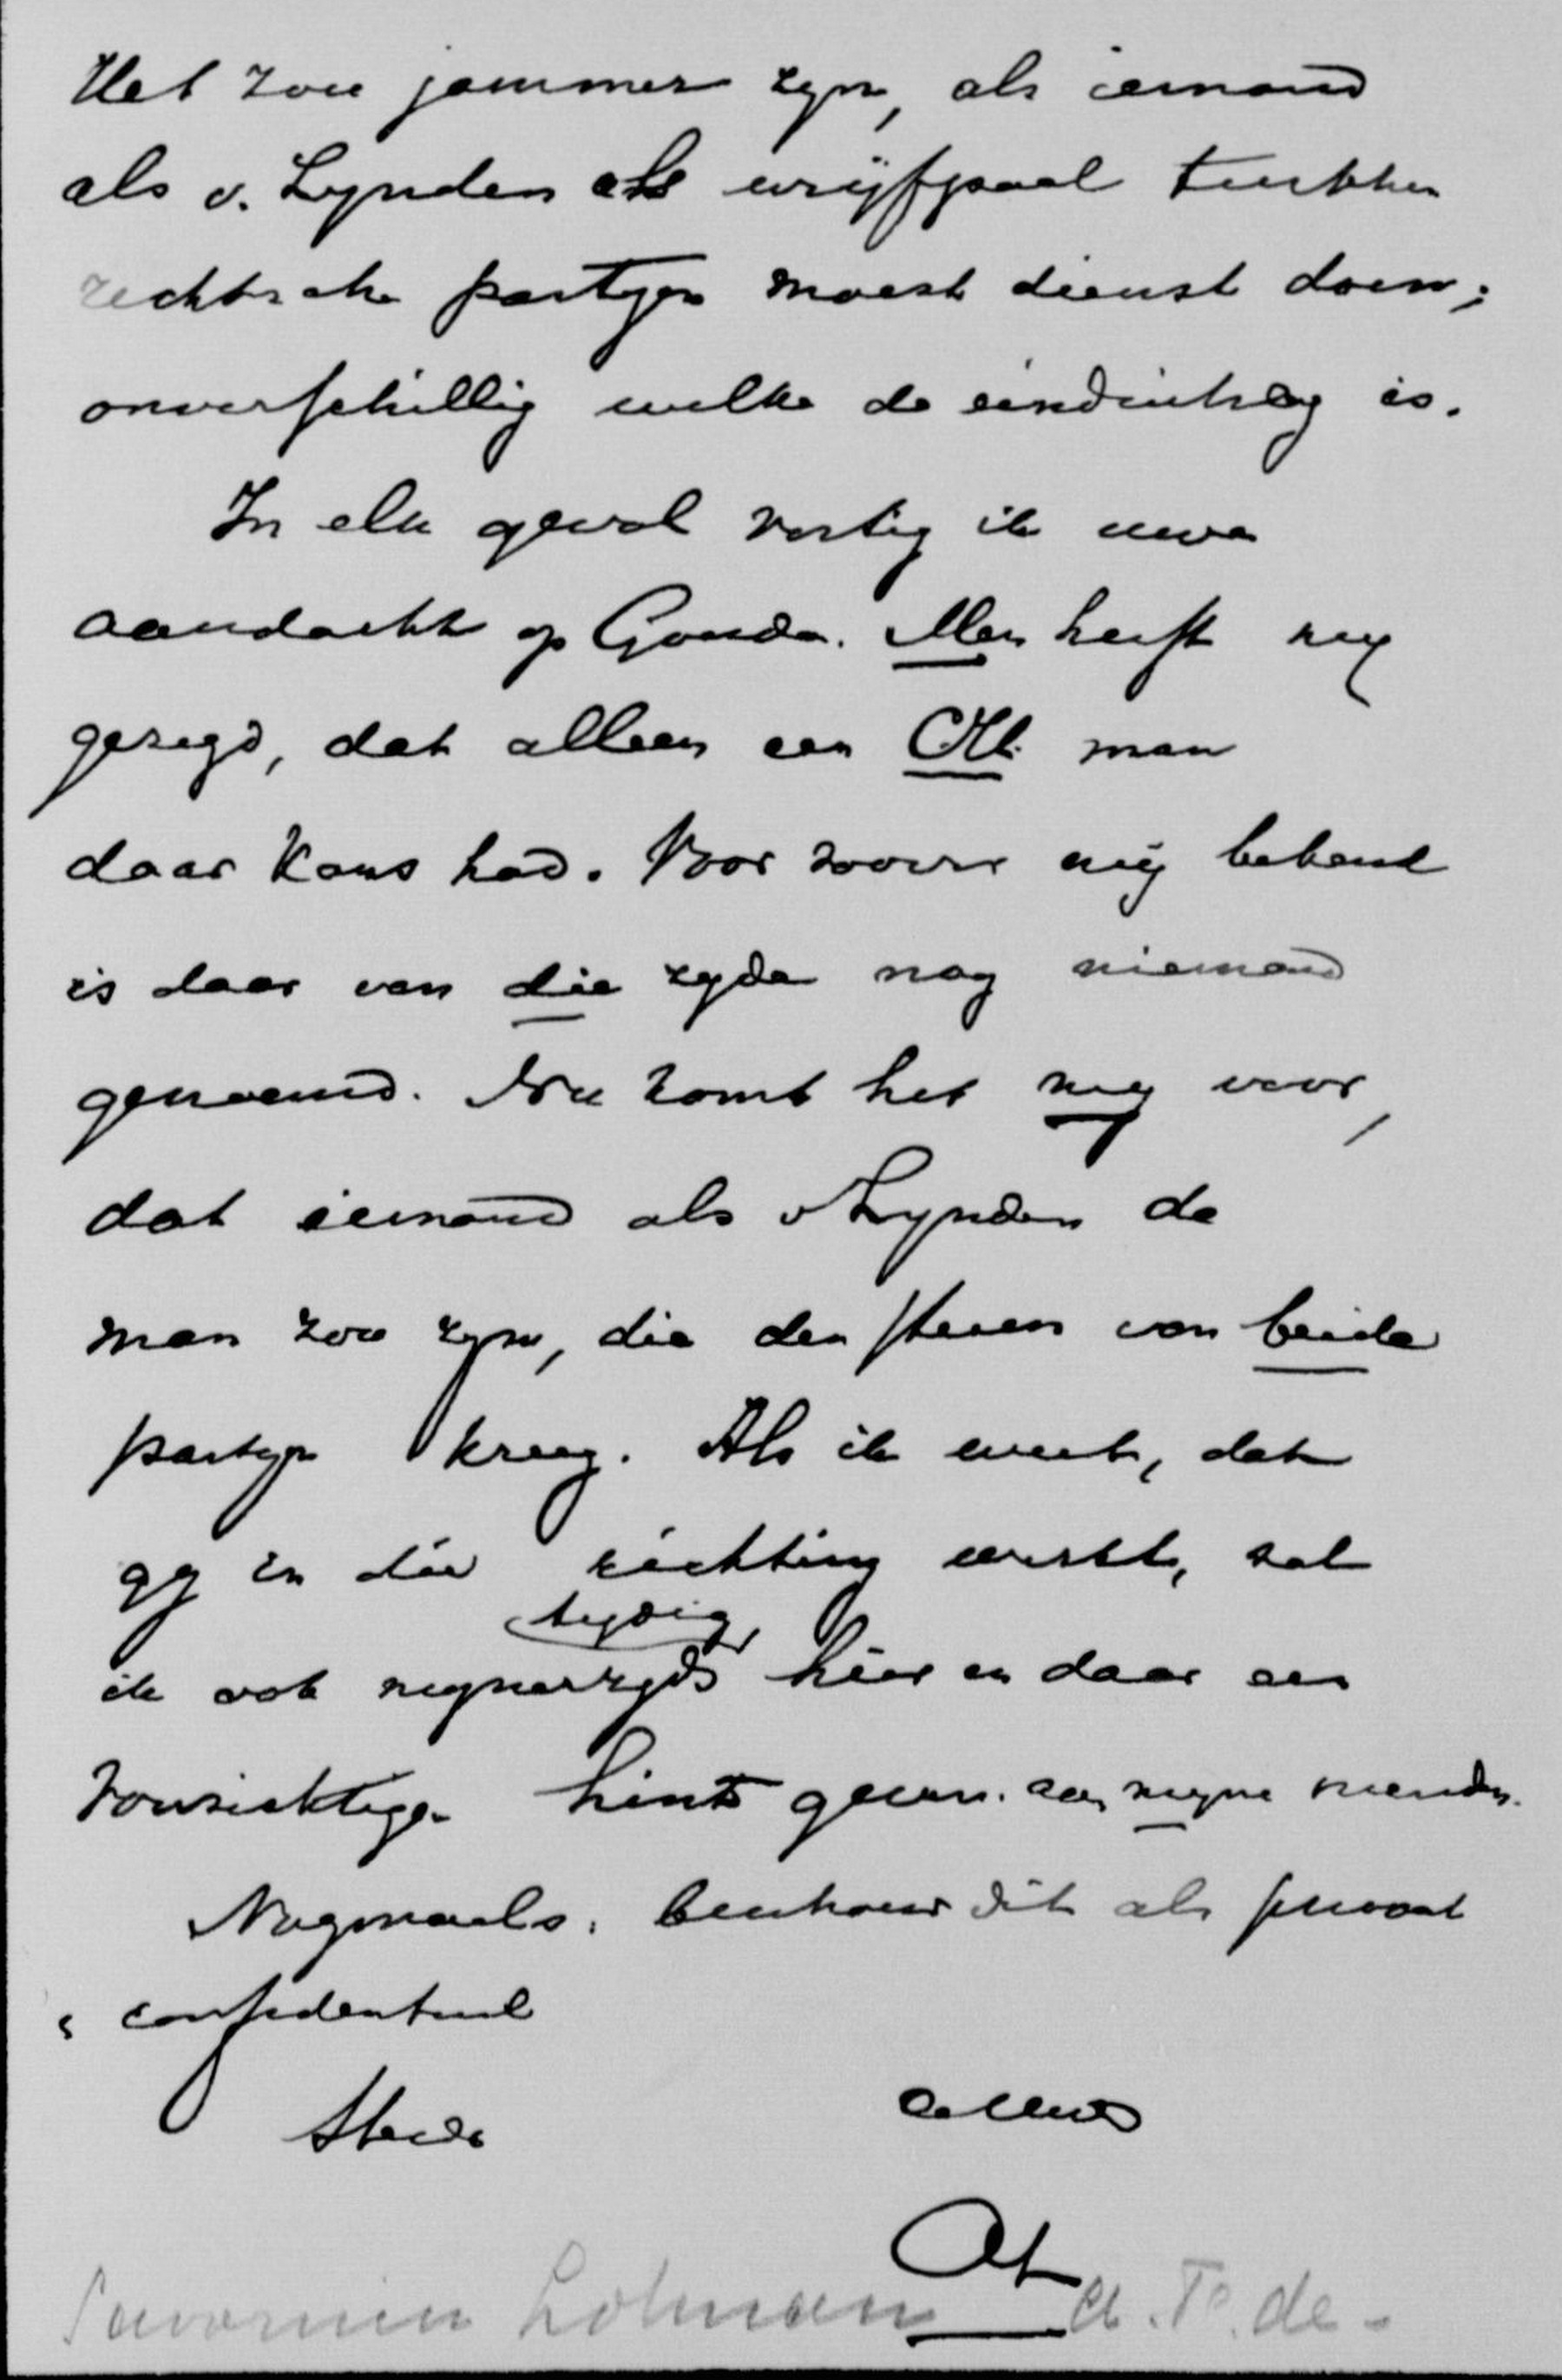 Het zou jammer zyn, als iemand
als v. Lynden als wrijfpaal tusschen
rechtsche partyen moest dienst doen;
onverschillig welke de einduitslag is.
In elk geval vestig ik uwe
aandacht op Gouda. Men heeft my
gezegd, dat alleen een CH. man
daar kans had. Voor zoover mij bekend
is daar van die zyde nog niemand
genoemd. Nu komt het my voor,
dat iemand als v Lynden de
man zou zyn, die den steun van beide
partyen kreeg. Als ik weet, dat
gy in die richting werkt, zal
tydig
ik ook mynerzyds hier en daar een
voorzichtige hint geven. aan myne vrienden.
Nogmaals. beschouw dit als privaat
& confidentieel
Steeds
Savornin Lohman A. F. de -